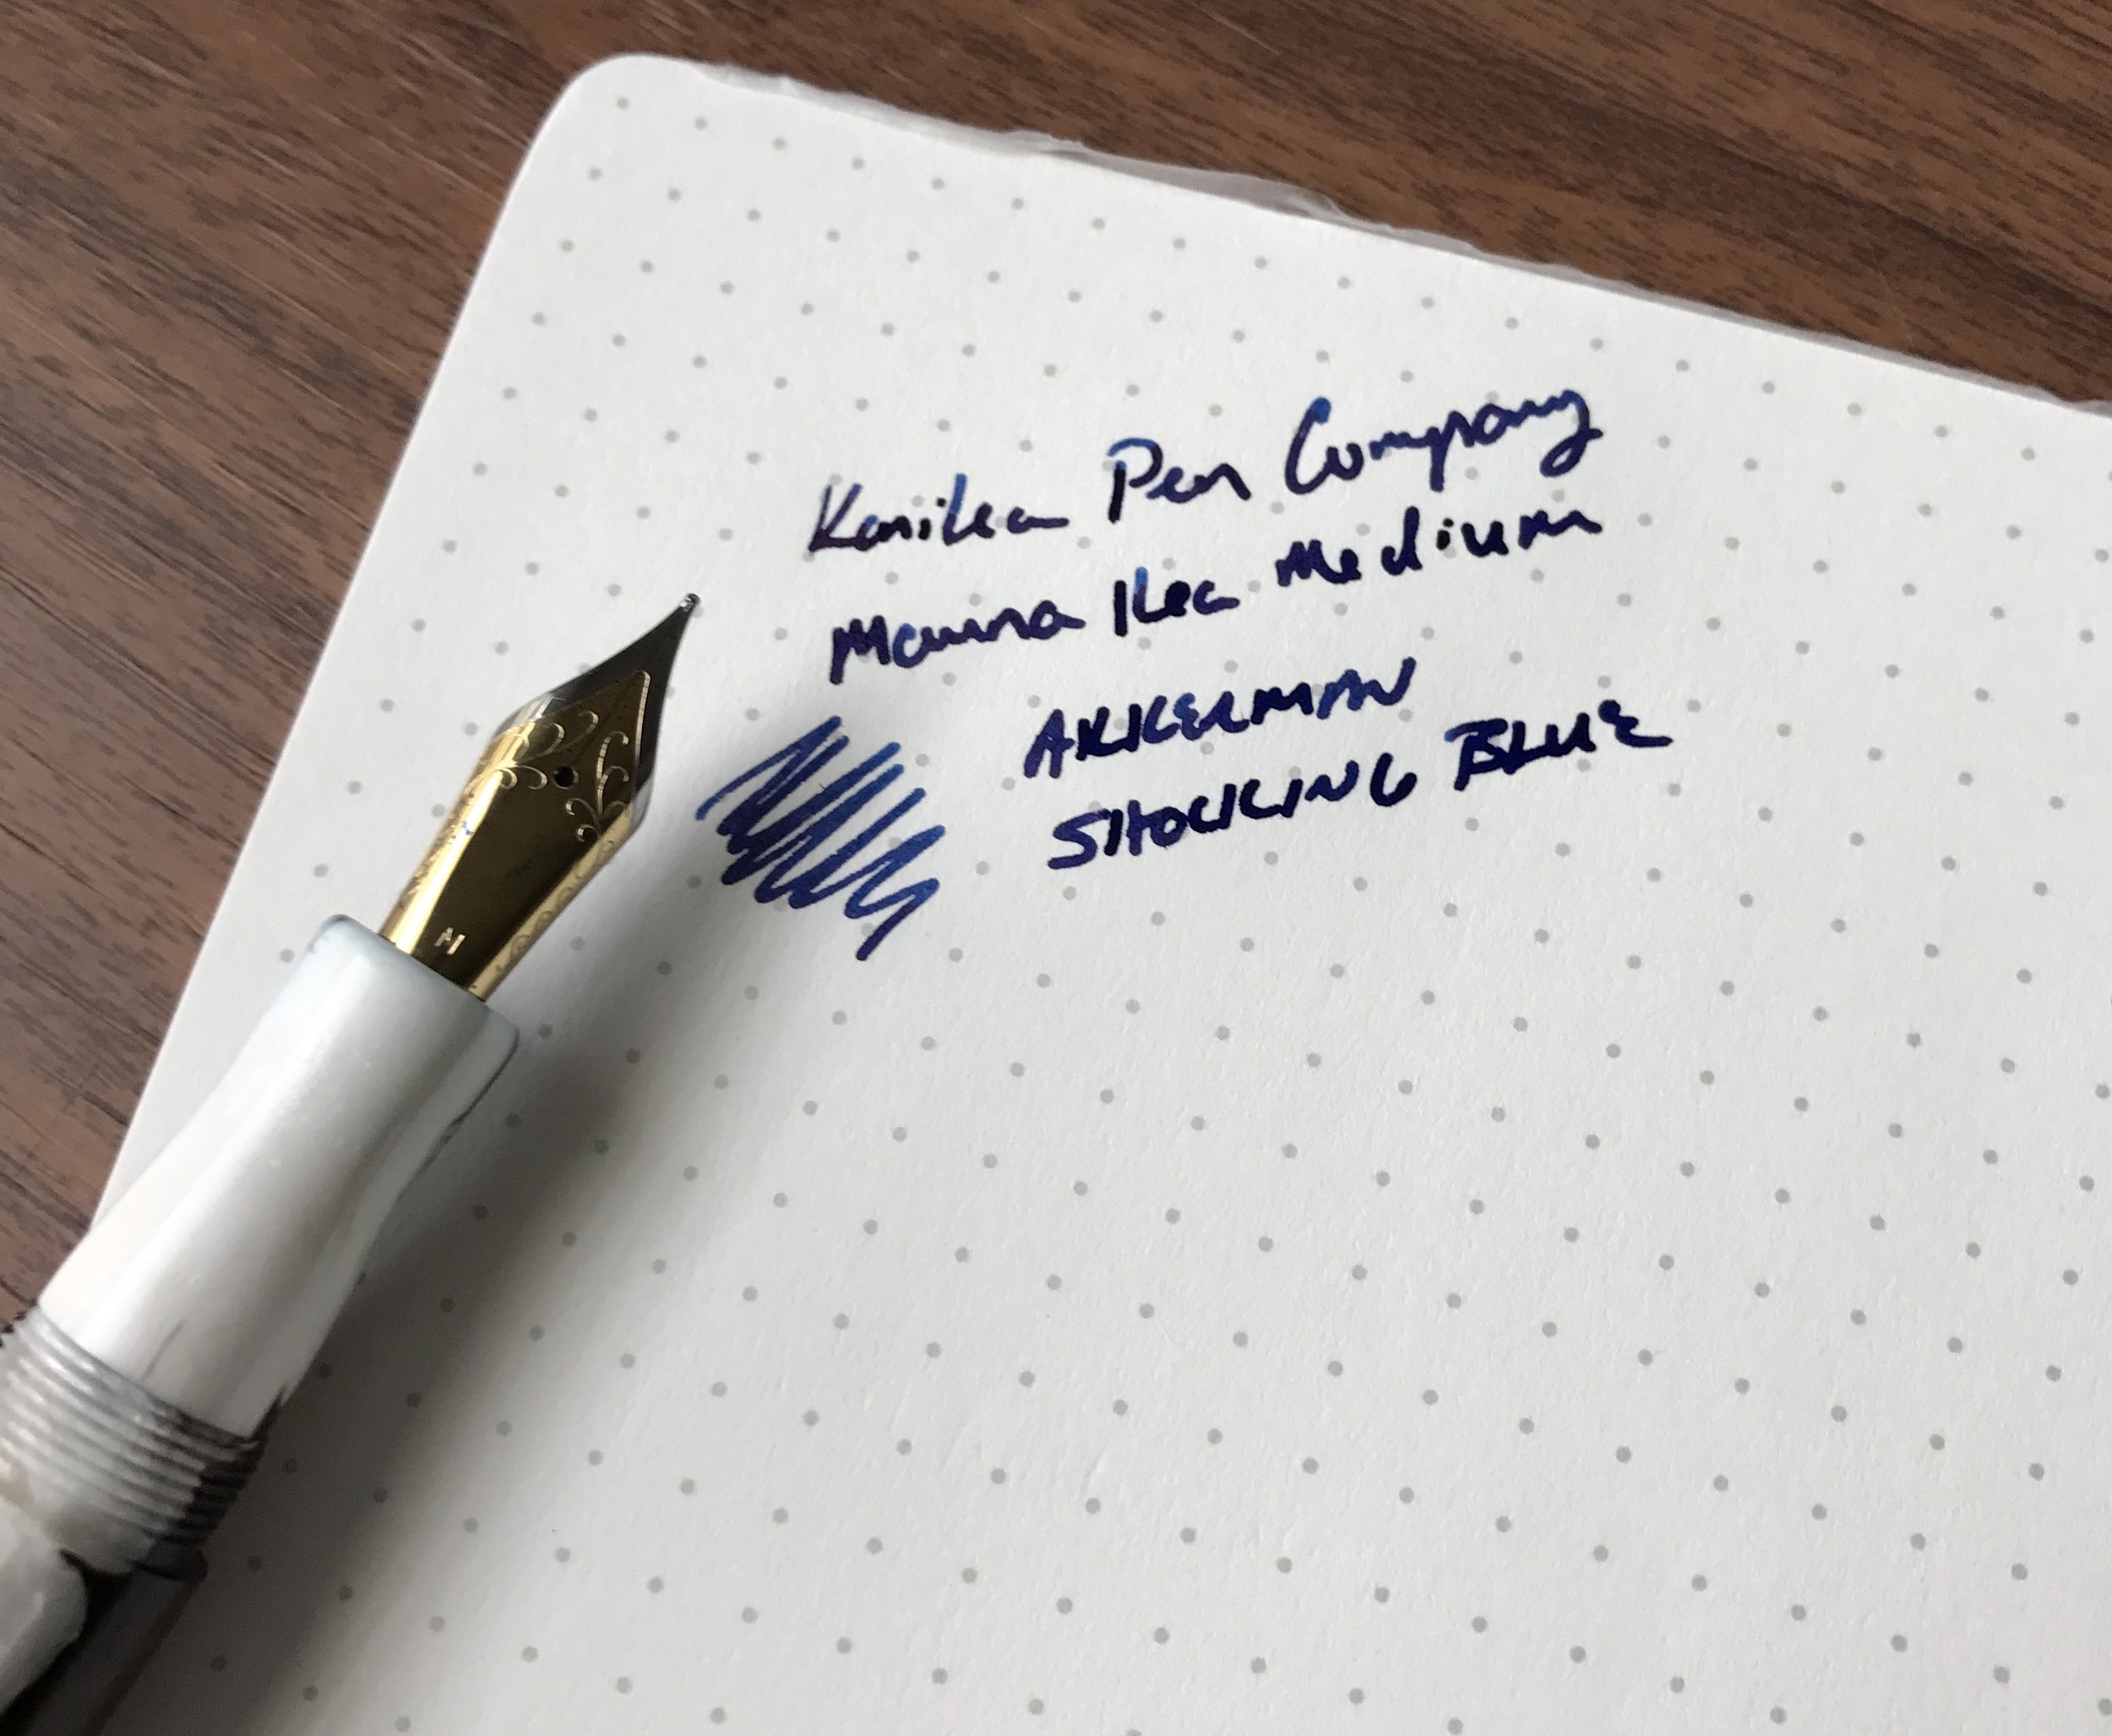 Kanilea Pen Company
Mauna Kea Medium
AKKERMAN
SHOCKING BLUE
M